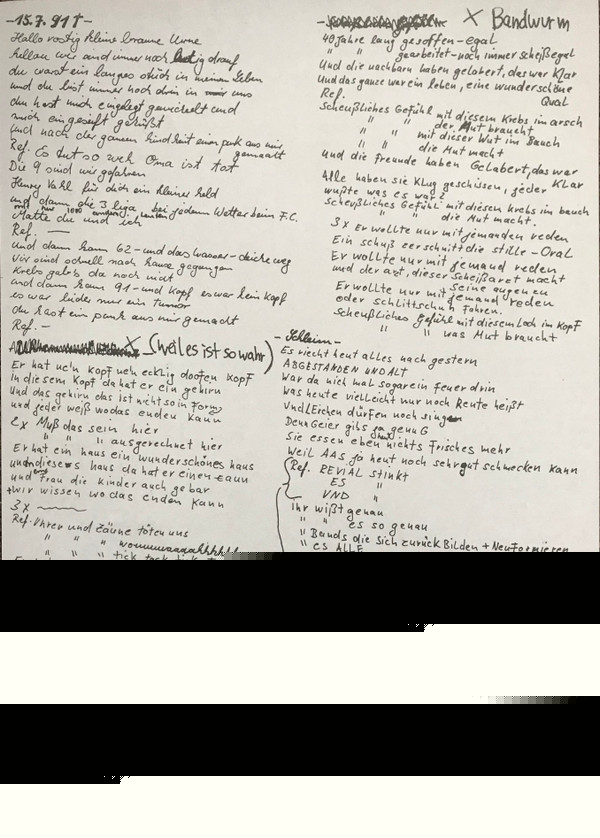 -15.7.91†-
Hallo rostig kleine braune Urne
hellau wir sind immer noch lustig drauf
du warst ein langes stück in meinem Leben
und du bist immer noch drin in uns
du hast mich eingelegt gewickelt und
mich eingeseift geküßt
und nach der ganzen kindheit einen punk aus mir
gemacht
Ref. Es tut so weh Oma ist tot
Die 9 sind wir gefahren
Henry Vahl für dich ein kleiner held
und dann die 3 liga bei jedem Wetter beim F.C.
mit nur 1000 andern
Matte du und ich
Ref. —
und dann kam 62 - und das wasser - deiche weg
Wir sind schnell nach hause gegangen
Krebs gabs da noch nicht
und dann kam 91 - und Kopf es war kein Kopf
es war leider nur ein tumor
du hast ein punk aus mir gemacht
Ref. -
X (weil es ist so wahr)
Er hat ne'n Kopf ne'n eckLig doofen Kopf
in diesem Kopf da hat er ein gehirn
und das gehirn das ist nicht so in Form
und jeder weiß wo das enden kann
2x Muß das sein hier
" " " ausgerechnet hier
Er hat ein haus ein wunderschönes haus
und dieses haus da hat er einen zaun
und Frau die kinder auch gebar
+ wir wissen wo das enden kann
3x
Ref. Uhren und Zäune töten uns
" " "
" tick tack
- X Bandwurm
40 Jahre lang gesoffen - egal
" " gearbeitet - noch immer scheißegal
Und die nachbarn haben gelabert, das war klar
Und das ganze war ein leben, eine wunderschöne
Qual
Ref.
Scheußliches Gefühl mit diesem Krebs im arsch
" " der Mut braucht
" " mit dieser Wut im Bauch
" " die Mut macht
und die Freunde haben Gelabert, das war
Klar
Alle haben sie Klug geschissen, jeder
wußte was es war?
Scheußliches Gefühl mit diesen Krebs im bauch
" " die Mut macht.
3x Er wollte nur mit jemanden reden
Ein schuß zerschnitt die stille - Oral
Er wollte nur mit jemand reden
und der arzt, dieser scheißarzt macht
seine augen zu
Er wollte nur mit jemand reden
oder schlittschuh fahren.
Scheußliches Gefühl mit diesem Loch im Kopf
" " was Mut braucht
- Schleim -
Es riecht heut alles nach gestern
ABGESTANDEN UND ALT
War da nich mal sogar ein feuer drin
Was heute vielleicht nur noch Rente heißt
Und LEichen dürfen noch singen
Denn Geier gibs ja genuG
Sie essen eben heut nichts Frisches mehr
Weil AAs ja heut noch sehr gut schmecken kann
Ref. REViAL stinkt
ES "
UND "
Ihr wißt genau
" " es so genau
" Bands die sich zurück Bilden + Neu Formieren
" es ALLE